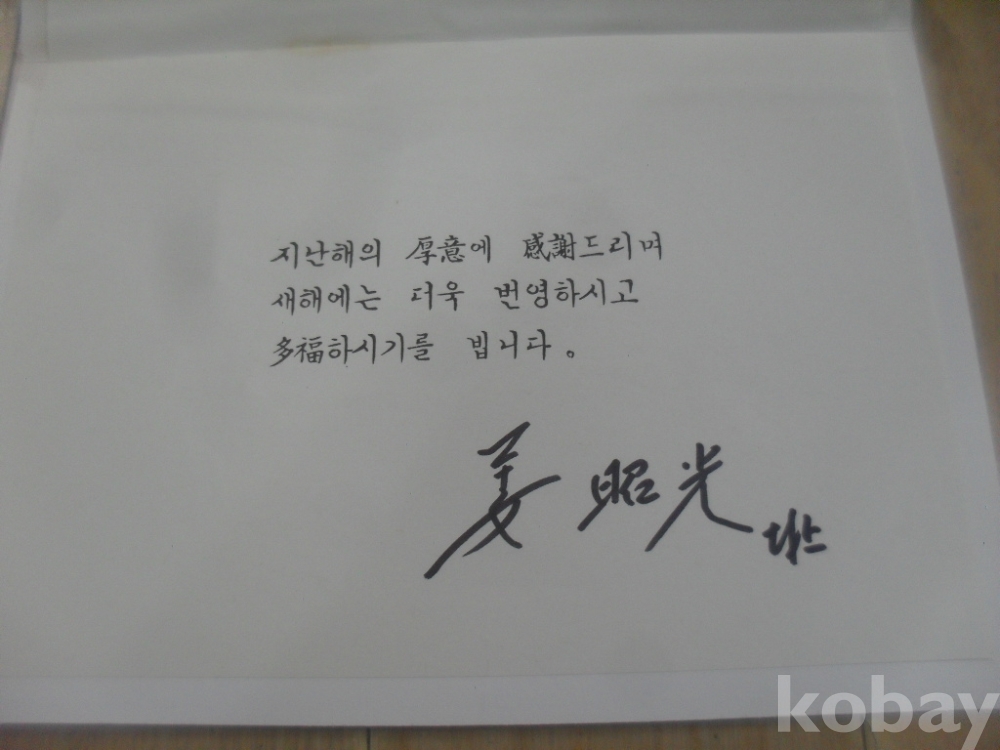 지난해의 厚意에 感謝드리며
새해에는 더욱 번영하시고
多福하시기를 빕니다。
姜昭光
kobay